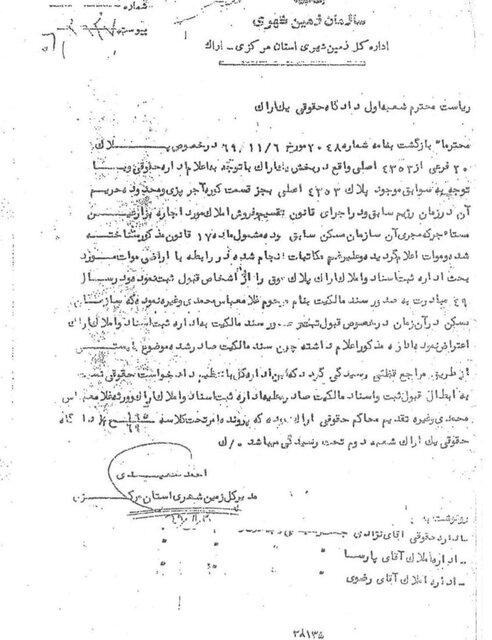 شماره
سازمان زمین شهری
پیوست
اداره کل زمین شهری استان مرکزی - اراک
ریاست محترم شعبه اول دادگاه حقوقی یک اراک
محترما" بازگشت بنامه شماره ۲۰۴۸ مورخ ۶/۱۱/۶۹ در خصوص پلاک
۲۰ فرعی از ۴۳۵۳ اصلی واقع در بخش اراک با توجه به اعلام اداره حقوقی و با
توجه به سوابق موجود پلاک ۴۳۵۳ اصلی بجز قسمت کوره آجر پزی و محدوده حریم
آن در زمان رژیم سابق و در اجرای قانون تقسیم و فروش املاک مورد اجاره بزارعین
مستاجر که مجری آن سازمان مسکن سابق بوده مشمول ماده ۱۷ قانون مذکور شناخته
شده و موات اعلام گردید و علیرغم مکاتبات انجام شده در رابطه با اراضی موات مورد
بحث اداره ثبت اسناد و املاک اراک پلاک فوق را از اشخاص قبول ثبت نموده و در سال
۴۹ مبادرت به صدور سند مالکیت بنام مرحوم غلامعباس محمدی و غیره نموده که سازمان
مسکن در آن زمان در خصوص قبول ثبت و صدور سند مالکیت به اداره ثبت اسناد و املاک اراک
اعتراض نموده اداره مذکور اعلام داشته چون سند مالکیت صادر شده موضوع بایستی
از طریق مراجع قضائی رسیدگی گردد که این اداره کل با تنظیم دادخواست حقوقی نسبت
به ابطال قبول ثبت و اسناد مالکیت صادره علیه اداره ثبت اسناد و املاک اراک و ورثه غلامعباس
محمدی و غیره تقدیم محاکم حقوقی اراک نموده که پرونده امر تحت کلاسه دادگاه
حقوقی یک اراک شعبه دوم تحت رسیدگی میباشد
احمد
مدیر کل زمین شهری استان مرکزی
رونوشت به
- اداره حقوقی آقای نژادی
- اداره املاک آقای پارسا
- اداره املاک آقای رضوی
۲۸۱۳۵